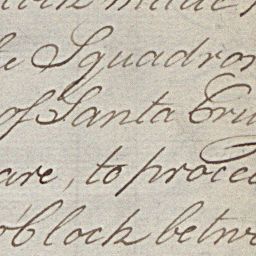 made
Squadron
of Santa Cru
are, to procee
o'Clock betw